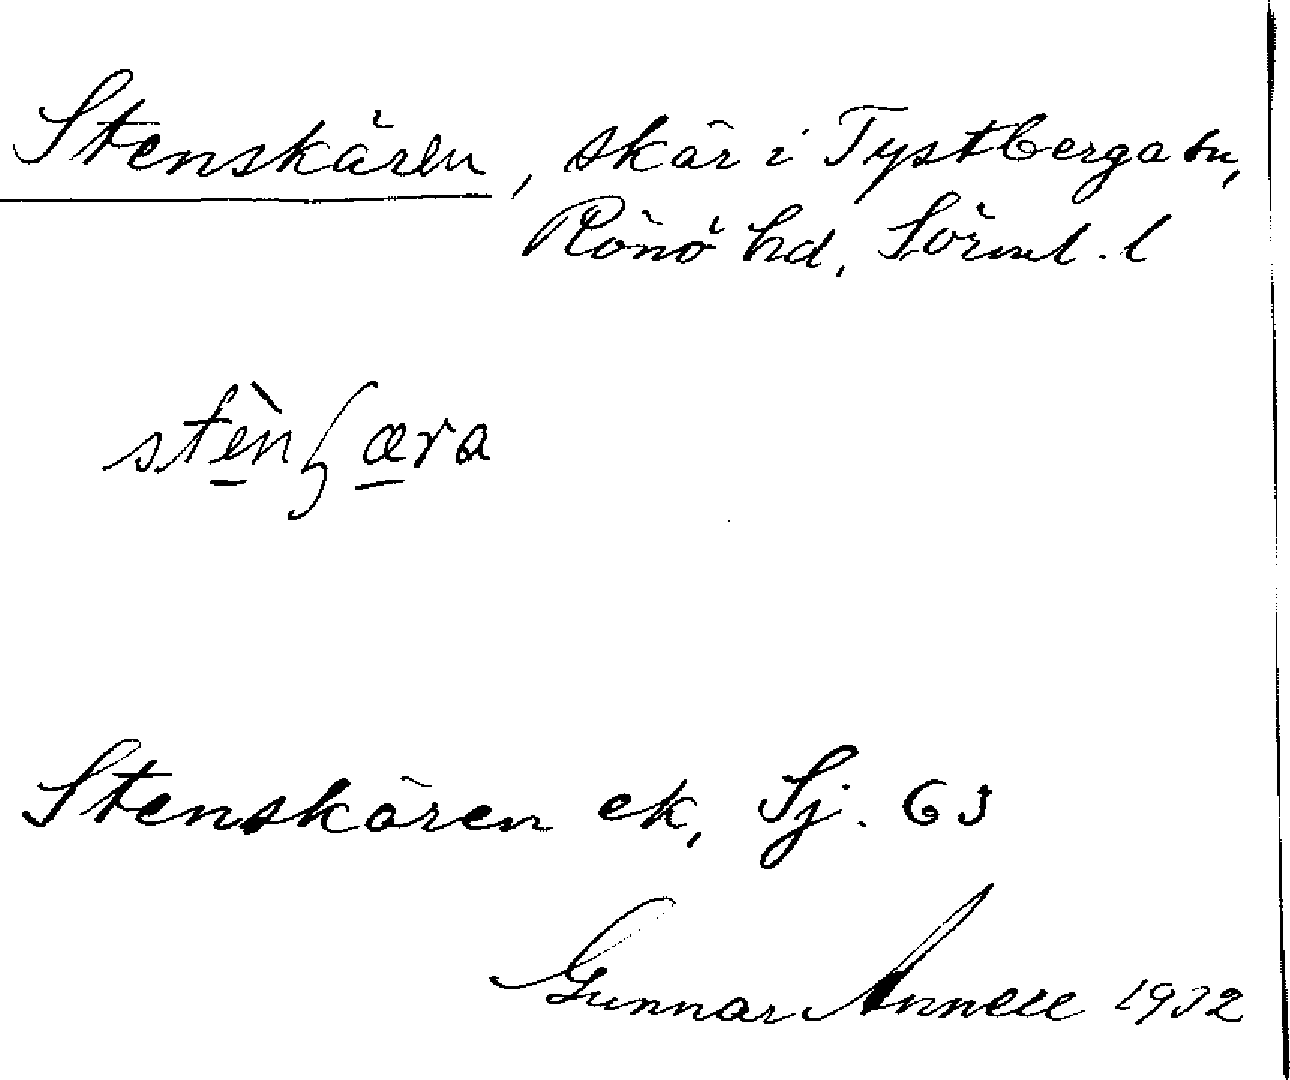 Stenskären, skär i Tystberga sn,
Rönö hd, Sörml. l
Stenskären ek, Sj. 63
Gunnar Annell 1932